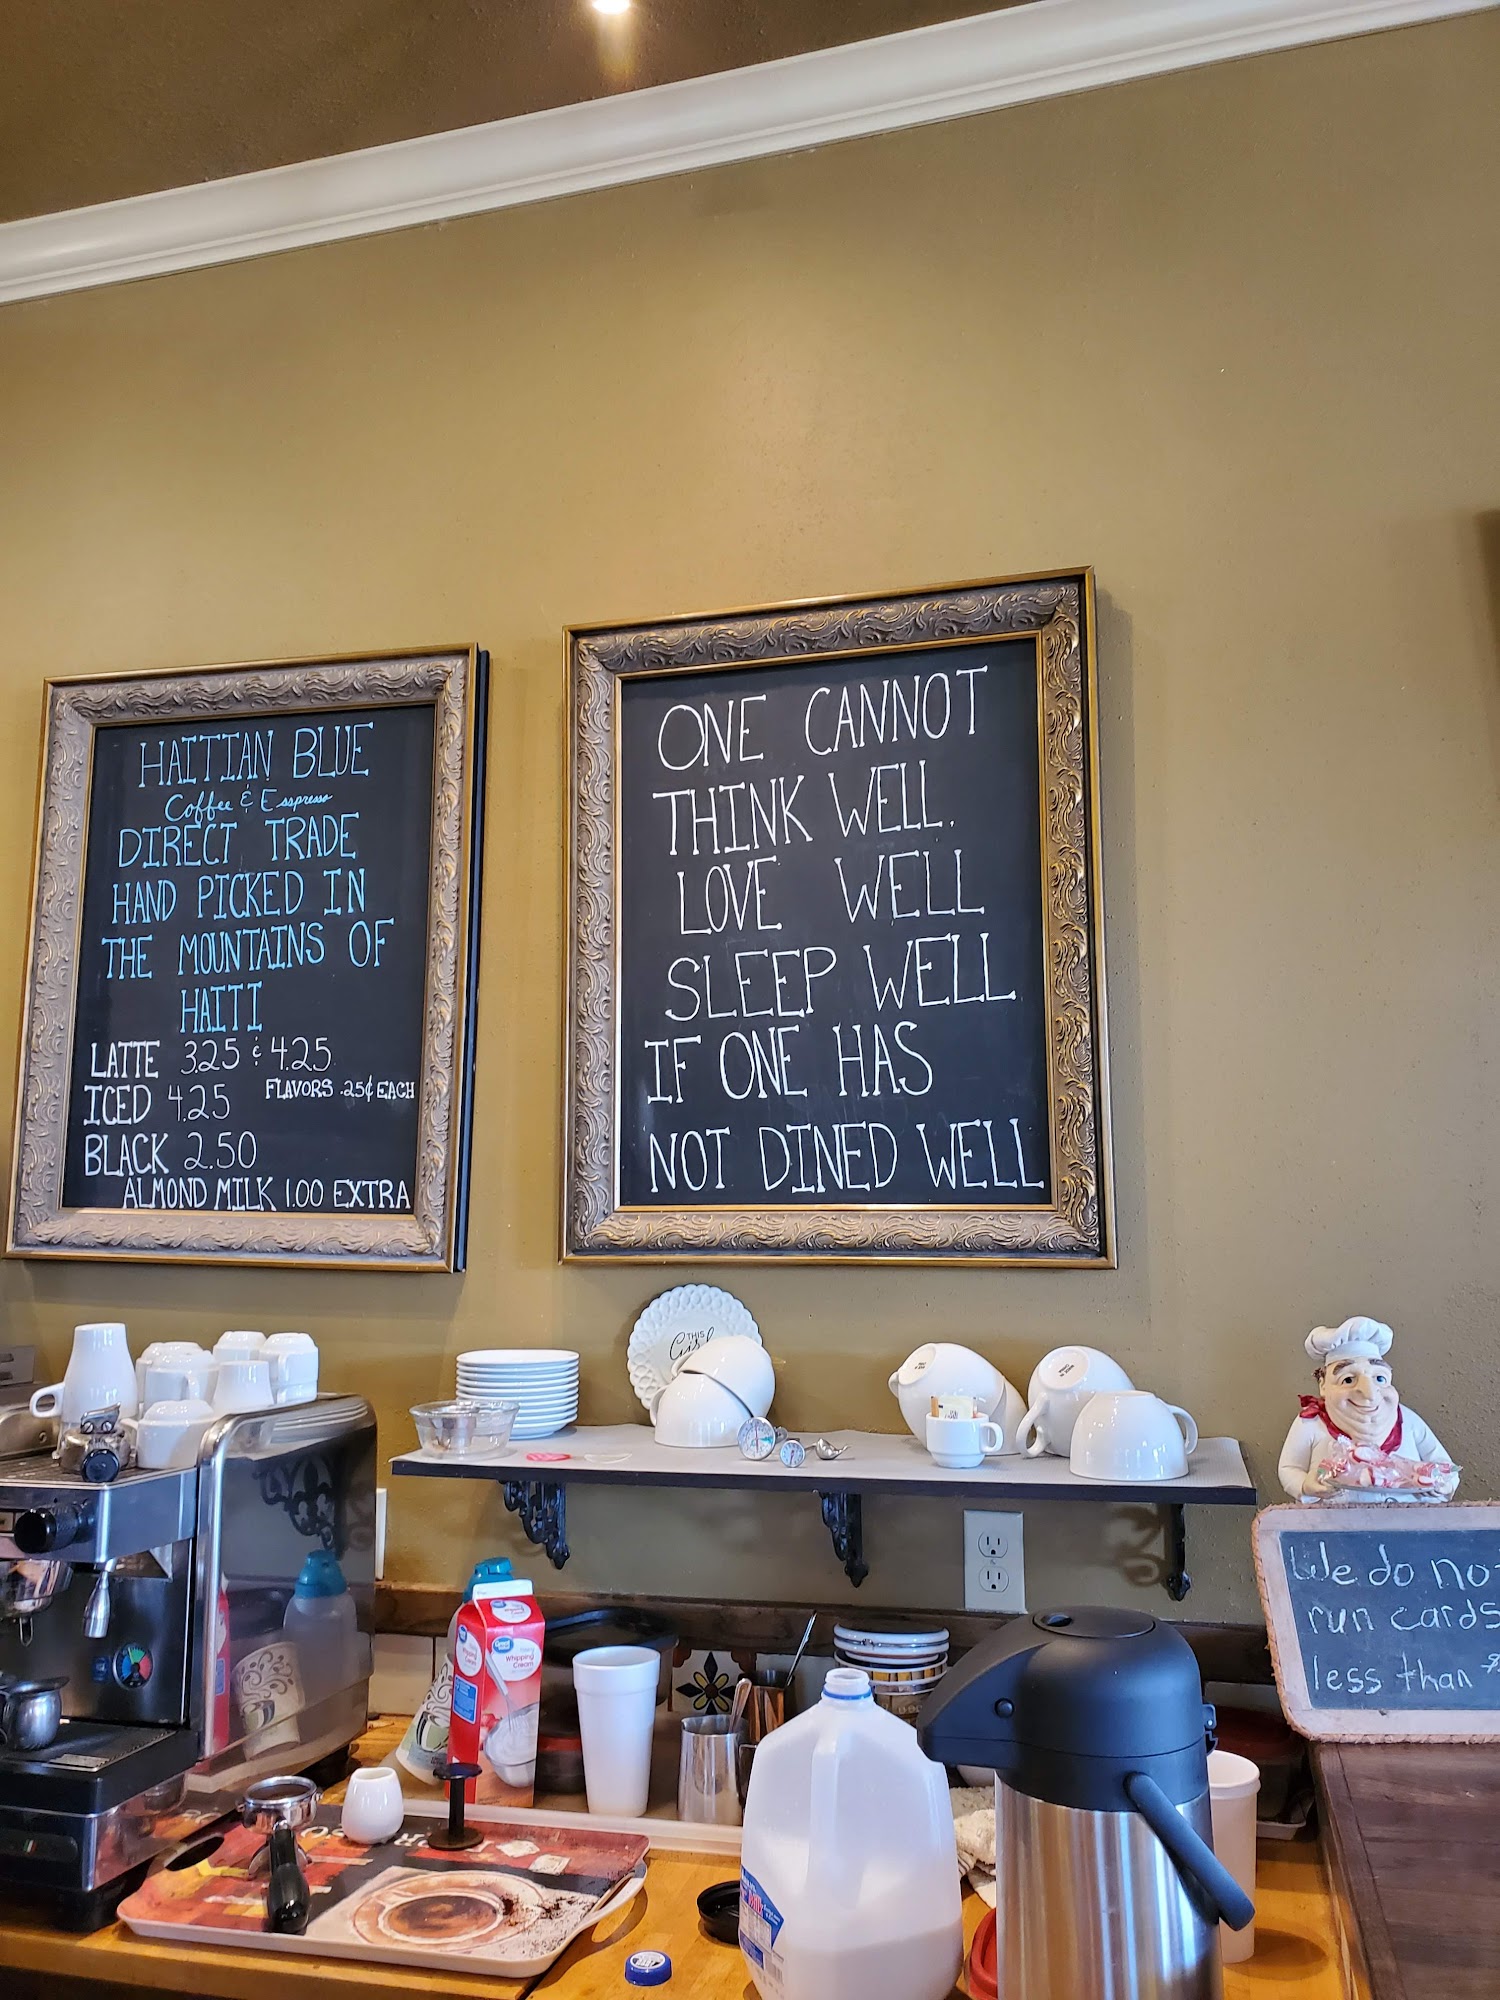 HAITIAN BLUE
Coffee & Esspresso
DIRECT TRADE
HAND PICKED IN
THE MOUNTAINS OF
HAITI
LATTE 3.25 & 4.25
ICED 4.25 FLAVORS .25¢ EACH
BLACK 2.50
ALMOND MILK 1.00 EXTRA
ONE CANNOT
THINK WELL.
LOVE WELL
SLEEP WELL
IF ONE HAS
NOT DINED WELL
THIS
Girl
We do not
run cards
less than $
Great Value
Whipping
Cream